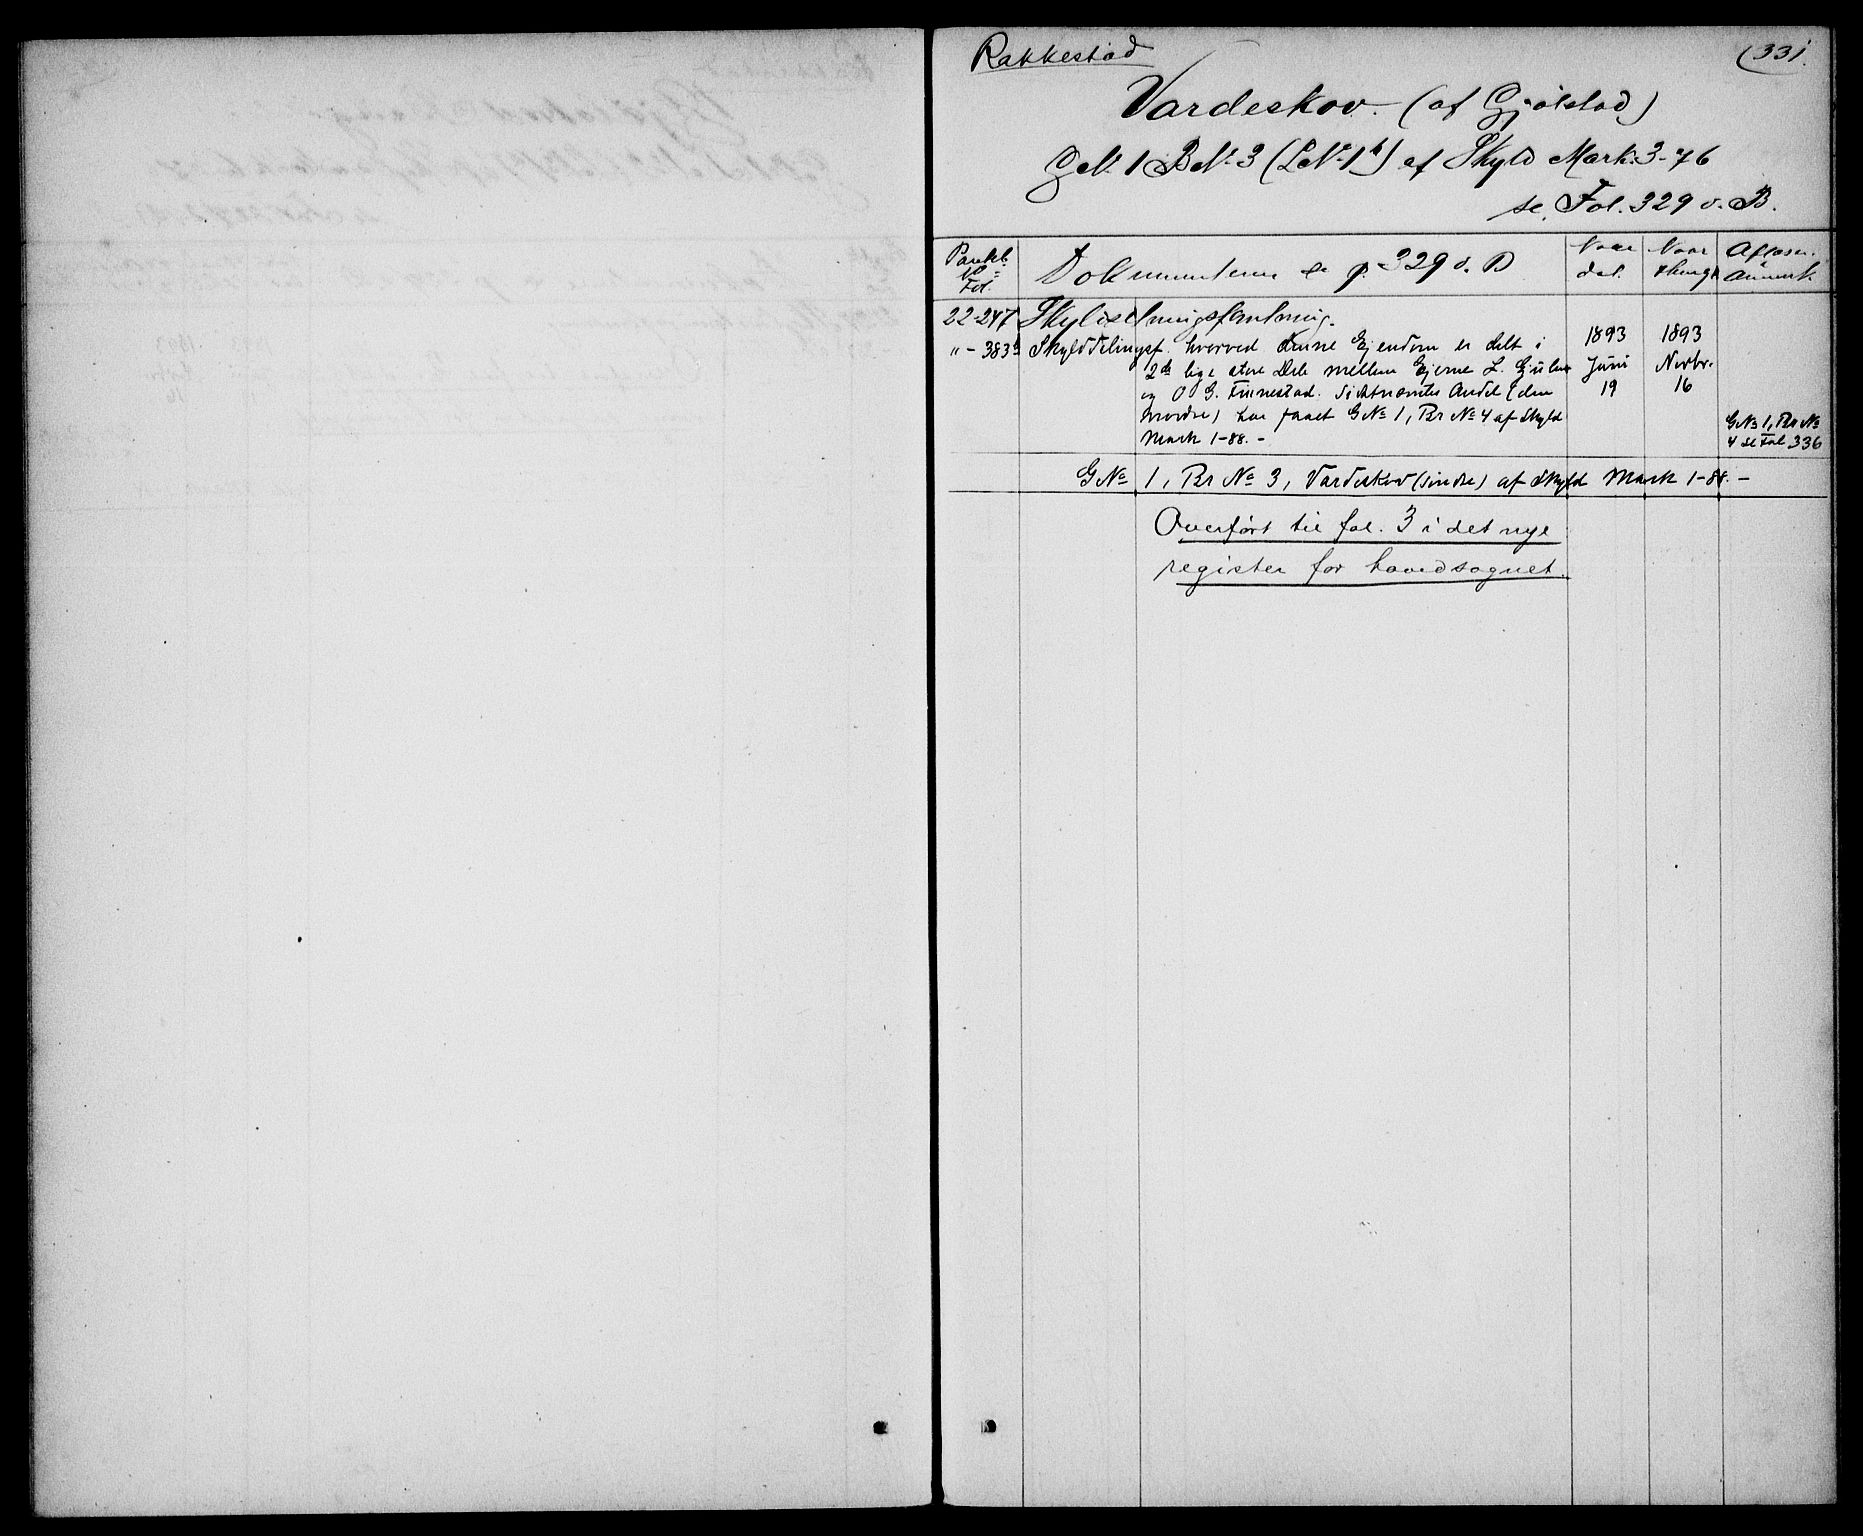 Rakkestad
(331.
Vardeskov. (af Gjølstad)
GN. 1 BN. 3 (LN. 1b) af Skyld Mark. 3-76
se. Fol. 329 v. B.
Pantb. No = Fol.
Dokumenterne se p. 329 v. B
Naar dat.
Naar thingl.
Aflæsn. Anmærk.
22-247 Skyldsetningsforretning.
" - 383b Skylddelingsf. hvorved denne Ejendom er delt i
2de lige store Dele mellem Ejerne L. Gjulem
og O G. Finnestad. Sidstnævntes Andel (den
nordre) har faaet G No 1, Br No 4 af Skyld
Mark 1-88. -
1893 Juni 19
1893 Novbr. 16
G No 1, Br No
4 se Fol 336
G No 1, Br No 3, Vardeskov (søndre) af Skyld Mark 1-88. -
Overført til fol. 3 i det nye
register for hovedsognet.